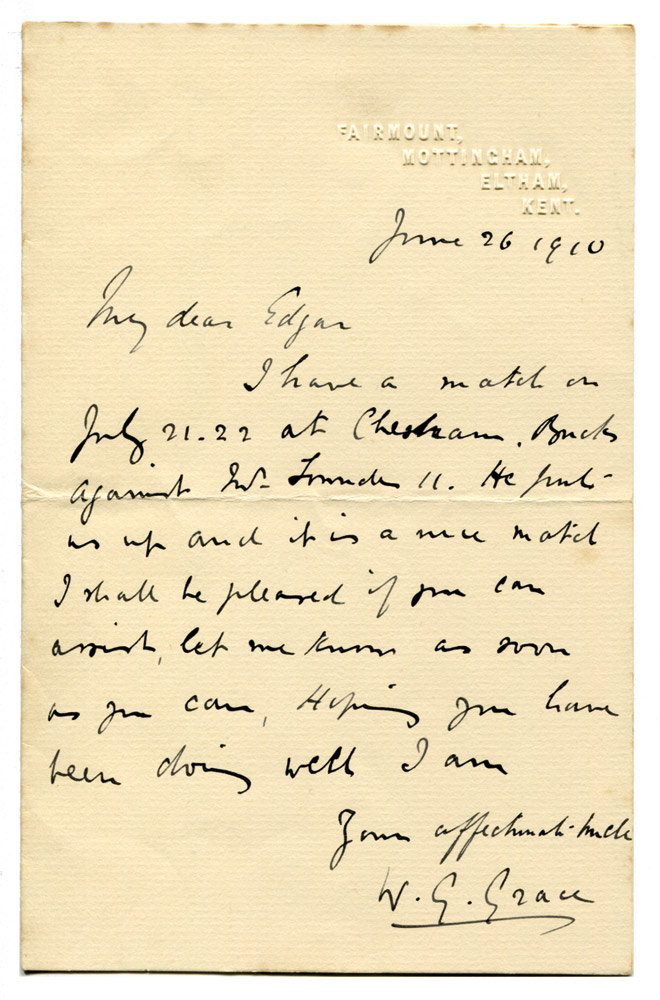 FAIRMOUNT,
MOTTINGHAM,
ELTHAM,
KENT.
June 26 1910
My dear Edgar
I have a match on
July 21-22 at Chesham, Bucks
against Mr Lowndes 11. He puts
us up and it is a nice match
I shall be pleased if you can
assist, let me know as soon
as you can, Hoping you have
been doing well I am
Your affectionate Uncle
W. G. Grace